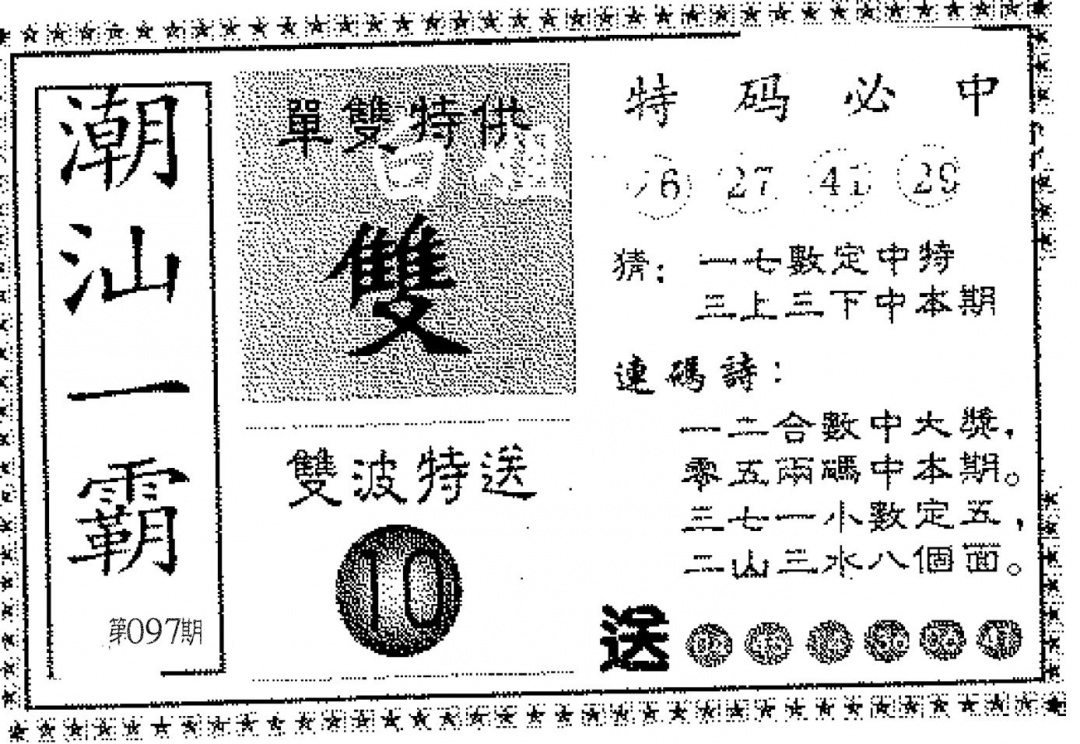 潮汕一霸
第097期
單雙特供
白姐
雙
雙波特送
10
特码必中
27 41 29
猜：一七數定中特
三上三下中本期
連碼詩：
一二合數中大獎，
零五兩碼中本期。
三七一小數定五，
二山三水八個面。
送